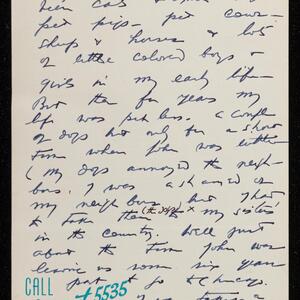 been cats &
pet pigs - pet cows -
sheep & horses & lots
of little colored boys &
girls in my early life -
But then for years my
life was pet less. a couple
of dogs but only for a short
time when John was little
( my dogs annoyed the neigh-
bors. I was ashamed of
my neighbors but I had
to take them (the dogs) x to my sisters
in the country. Well just
about the time John was
leaving us some six years
past to go to Chicago.
CALL
#5535